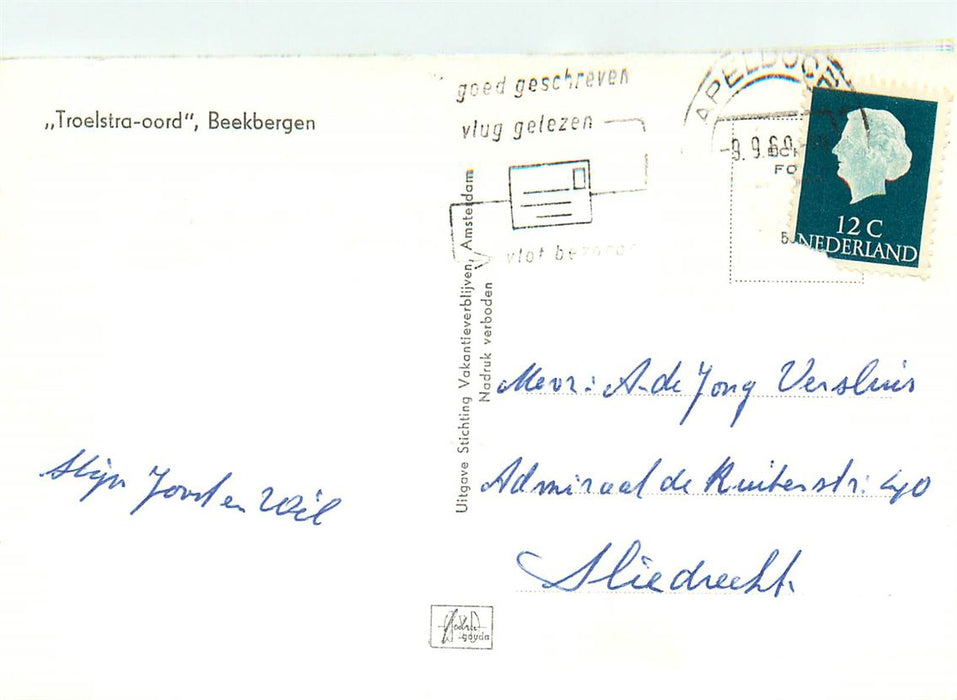 „Troelstra-oord", Beekbergen
goed geschreven
vlug gelezen
vlot
APELDOO
-9.9.60
FO
12 C
NEDERLAND
Uitgave Stichting Vakantieverblijven, Amsterdam
Nadruk verboden
Mevr: A. de Jong Versluis
Admiraal de Ruiterstr: 40
Sliedrecht.
en Wil
gouda